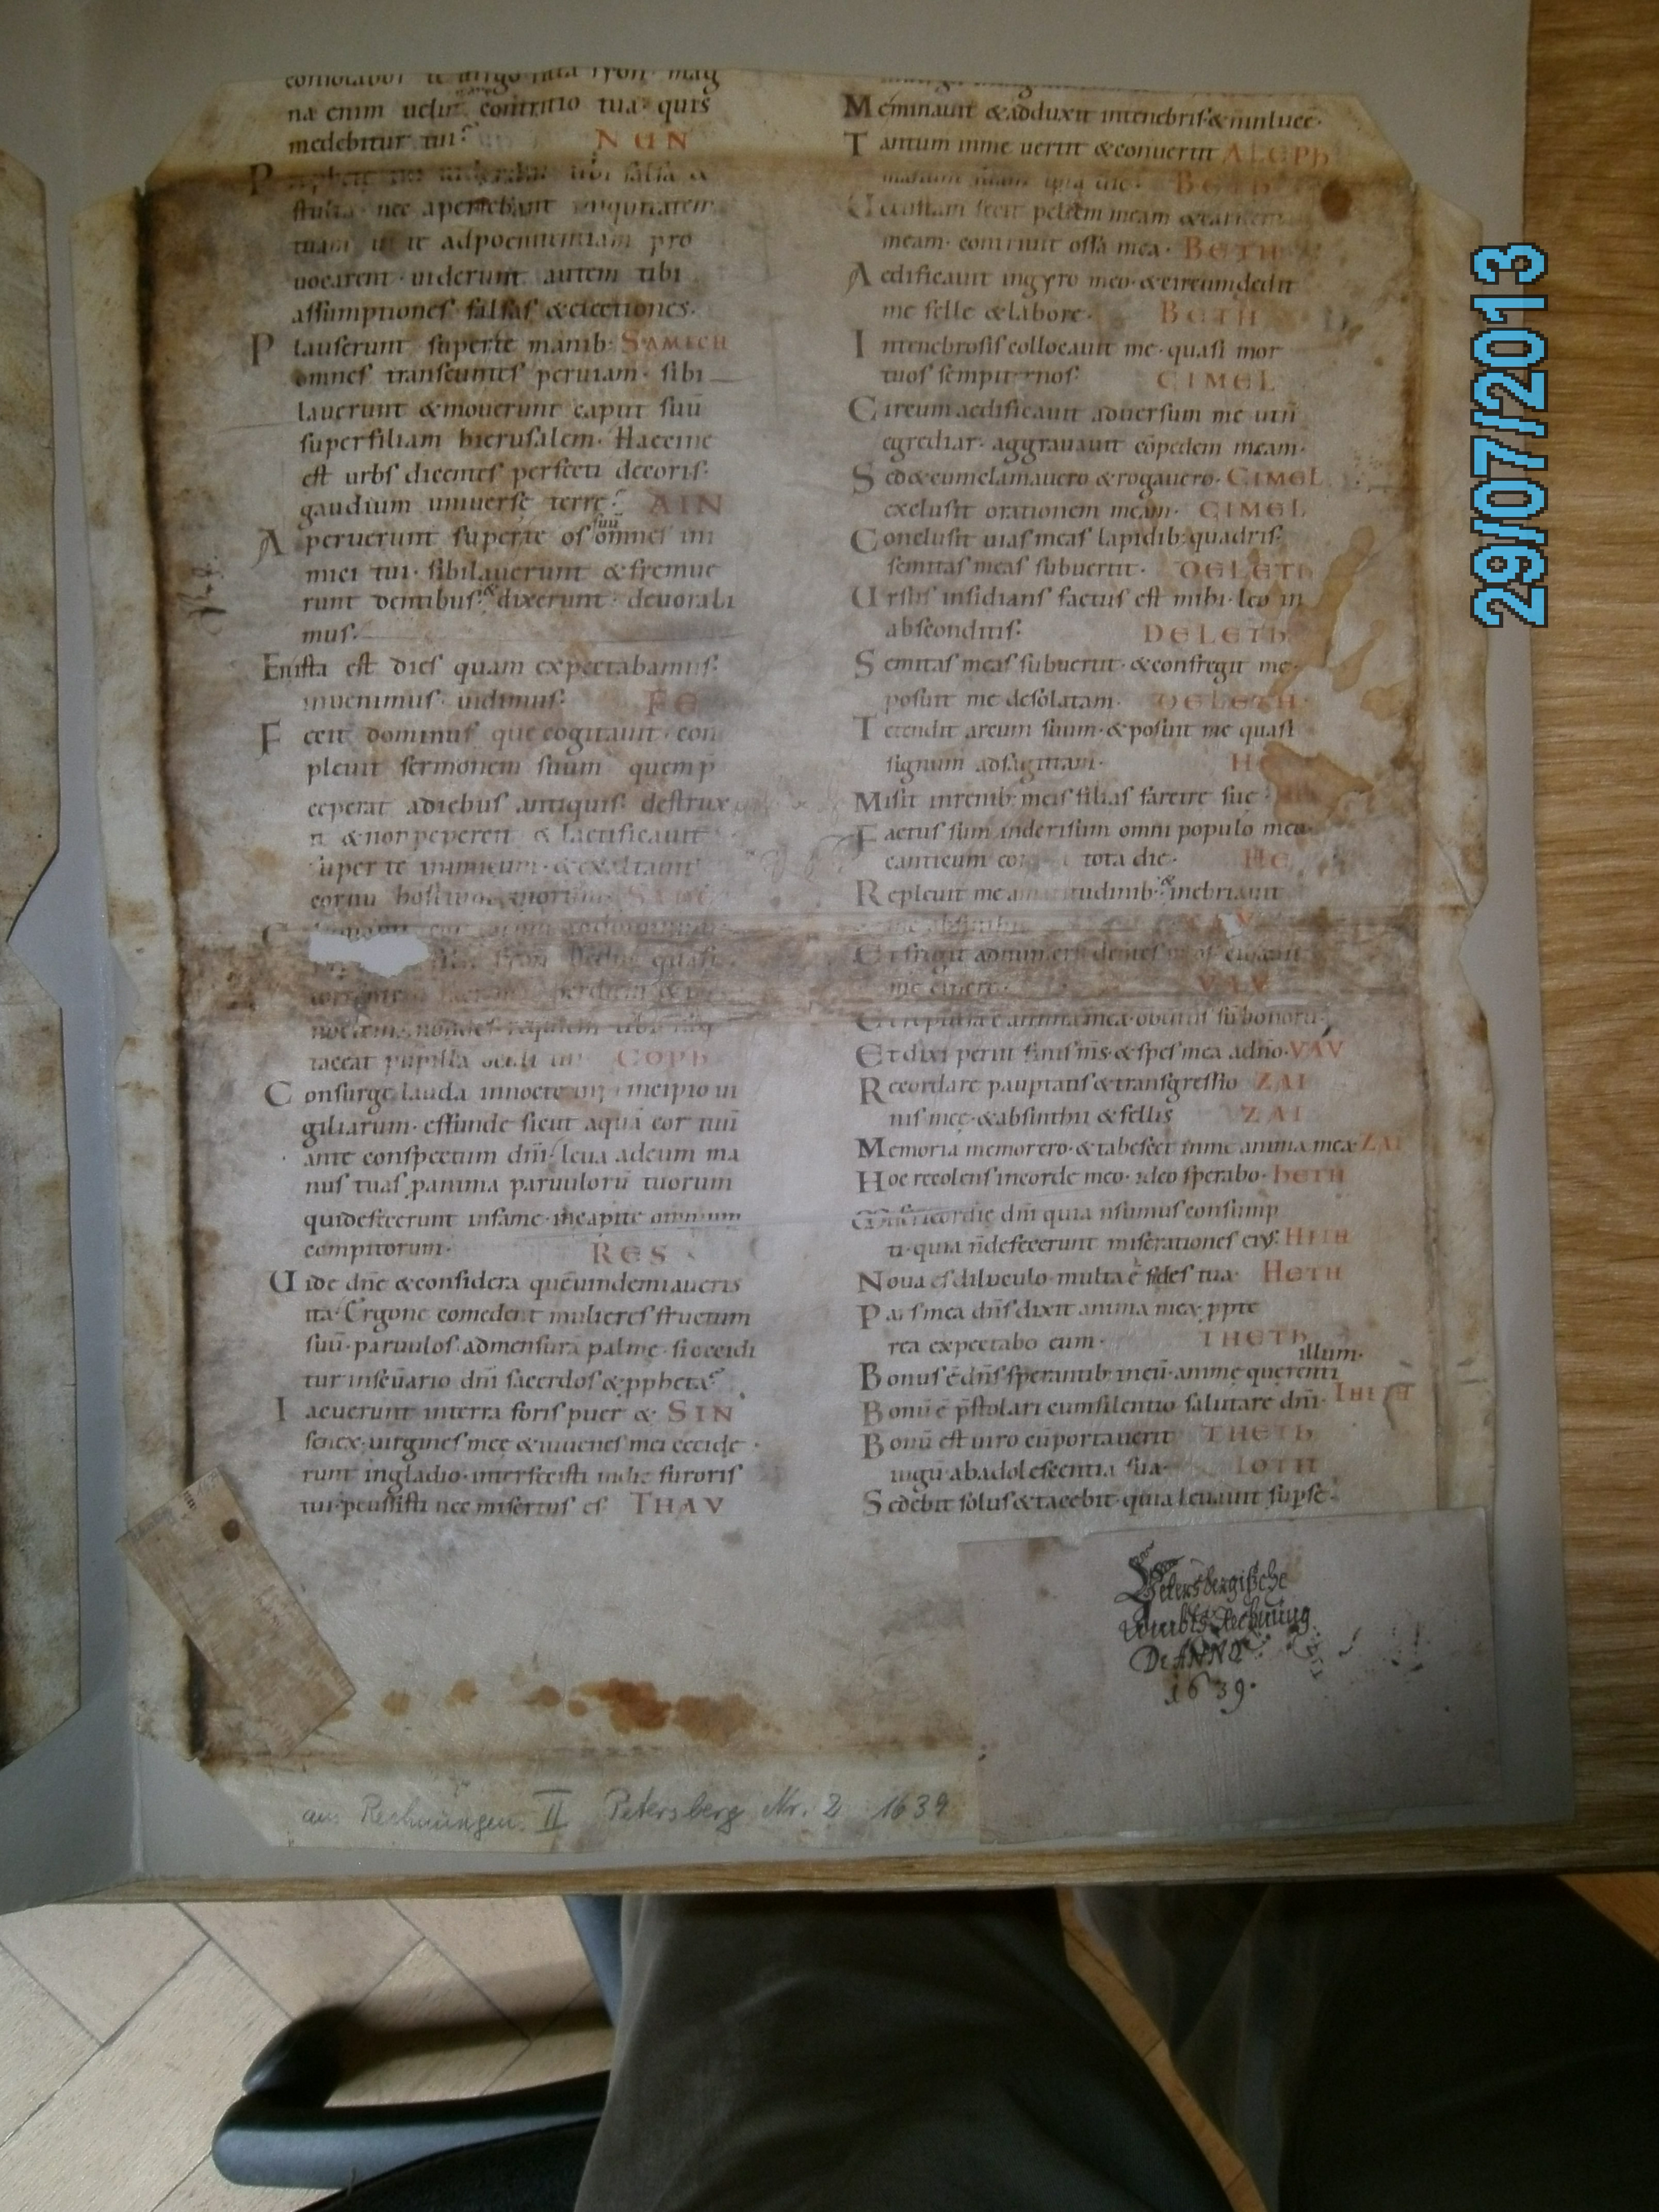 consolabor te uirgo filia syon. mag
næ enim uelut contritio tua. quis
medebitur tui? NUN
P tibi falsa &
stulta. nec aperiebant iniquitatem
tuam ut te adpoenitentiam pro
uocarent. uiderunt autem tibi
assumptiones falsas & eiectiones.
Plauserunt super te manib: SAMECH
omnes transeuntes per uiam. sibi
lauerunt & mouerunt caput suū
super filiam hierusalem. Haeccine
est urbs dicentes perfecti decoris.
gaudium uniuersę terrę? AIN
Aperuerunt super te os suū omnes ini
mici tui. sibilauerunt & fremue
runt dentibus. & dixerunt. deuorabi
mus.
En ista est dies quam expectabamus.
inuenimus. uidimus. FE
Fecit dominus que cogitauit. con
pleuit sermonem suum quem p
ceperat adiebus antiquis. destrux
it & non pepercit & laetificauit
super te inimicum. & exaltauit
cornu hostium tuorum. SADE
quasi
noctem. non des requiem tibi neq
taceat pupilla oculi tui COPH
Consurge lauda innocte in principio ui
giliarum. effunde sicut aquā cor tuū
ante conspectum dn̄i. leua adeum ma
nus tuas p anima paruulorū tuorum
qui defecerunt infame. incapite omnium
compitorum. RES
Uide dn̄e & considera quē uindemiaueris
ita. Ergone comedent mulieres fructum
suū. paruulos admensurā palmę. si occidi
tur insc̄uario dn̄i sacerdos & ppheta?
Iacuerunt interra foris puer & SIN
senex. uirgines meę & iuuenes mei cecide
runt ingladio. interfecisti indie furoris
tui. pcussisti nec misertus es THAV
Me minauit & adduxit intenebris. & n̄ inlucē.
Tantum inme uertit & conuertit ALEPH
manum suam tota die. BETH
Uetustam fecit pellem meam & carnem
meam. contriuit ossa mea. BETH
Aedificauit ingyro meo. & circumdedit
me felle & labore. BETH
Intenebrosis collocauit me. quasi mor
tuos sempiternos. CIMEL
Circumaedificauit aduersum me utn̄
egrediar. aggrauauit cōpedem meam.
Sed & cumclamauero & rogauero. CIMEL
exclusit orationem meam. CIMEL
Conclusit uias meas lapidib: quadris.
semitas meas subuertit. DELETH
Ursus insidians factus est mihi. leo in
absconditis. DELETH
Semitas meas subuertit. & confregit me.
posuit me desolatam. DELETH
Tetendit arcum suum. & posuit me quasi
signum adsagittam. HE
Misit inrenib: meis filias faretrę suę.
Factus sum inderisum omni populo meo.
canticum tota die. HE
Repleuit me amaritudinib: & inebriauit
me absinthio VAV
Et fregit adnumerū dentes meos. cibauit
me cinere. VAV
Et repulsa ē anima mea. oblitus sū bonorū.
Et dixi periit finis m̄s. & spes mea adn̄o. VAV
Recordare pauptatis & transgressio ZAI
nis meę. & absinthii & fellis ZAI
Memoria memorero. & tabescet inme anima mea ZAI
Hoc recolens incorde meo. ideo sperabo. hETH
Misericordię dn̄i quia nsumus consump
ti. quia n̄ defecerunt miserationes eius. HETH
Noua es diluculo. multa ē fides tua HETH
Pars mea dn̄s dixit anima mea. ppte
rea expectabo eum. THETH
illum.
Bonus ē dn̄s sperantib: ineū. animę querenti
Bonū ē p̄stolari cumsilentio salutare dn̄i. THETH
Bonū est uiro cū portauerit THETH
iugū abadolescentia sua IOTH
Sedebit solus & tacebit. quia leuauit supse.
Petersbergische
Vorwerks Rechnung
De ANNO
1639.
aus Rechnungen II Petersberg Nr. 2 1639
29/07/2013